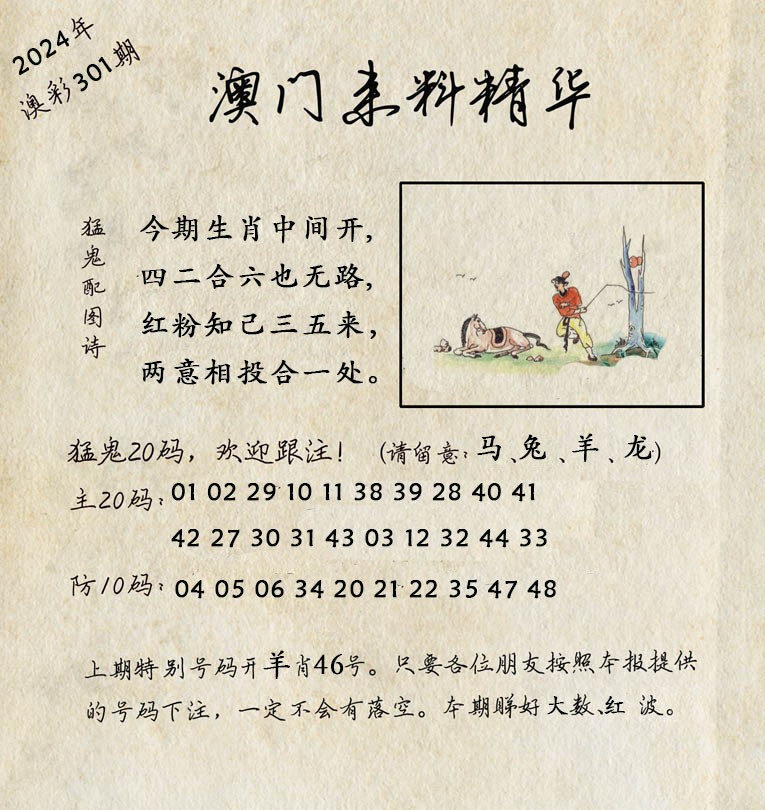 2024年
澳彩301期
澳门来料精华
猛鬼配图诗
今期生肖中间开,
四二合六也无路,
红粉知己三五来,
两意相投合一处。
猛鬼20码，欢迎跟注！（请留意：马、兔、羊、龙）
主20码：01 02 29 10 11 38 39 28 40 41
42 27 30 31 43 03 12 32 44 33
防10码：04 05 06 34 20 21 22 35 47 48
上期特别号码开羊肖46号。只要各位朋友按照本报提供
的号码下注，一定不会有落空。本期睇好大数、红 波。